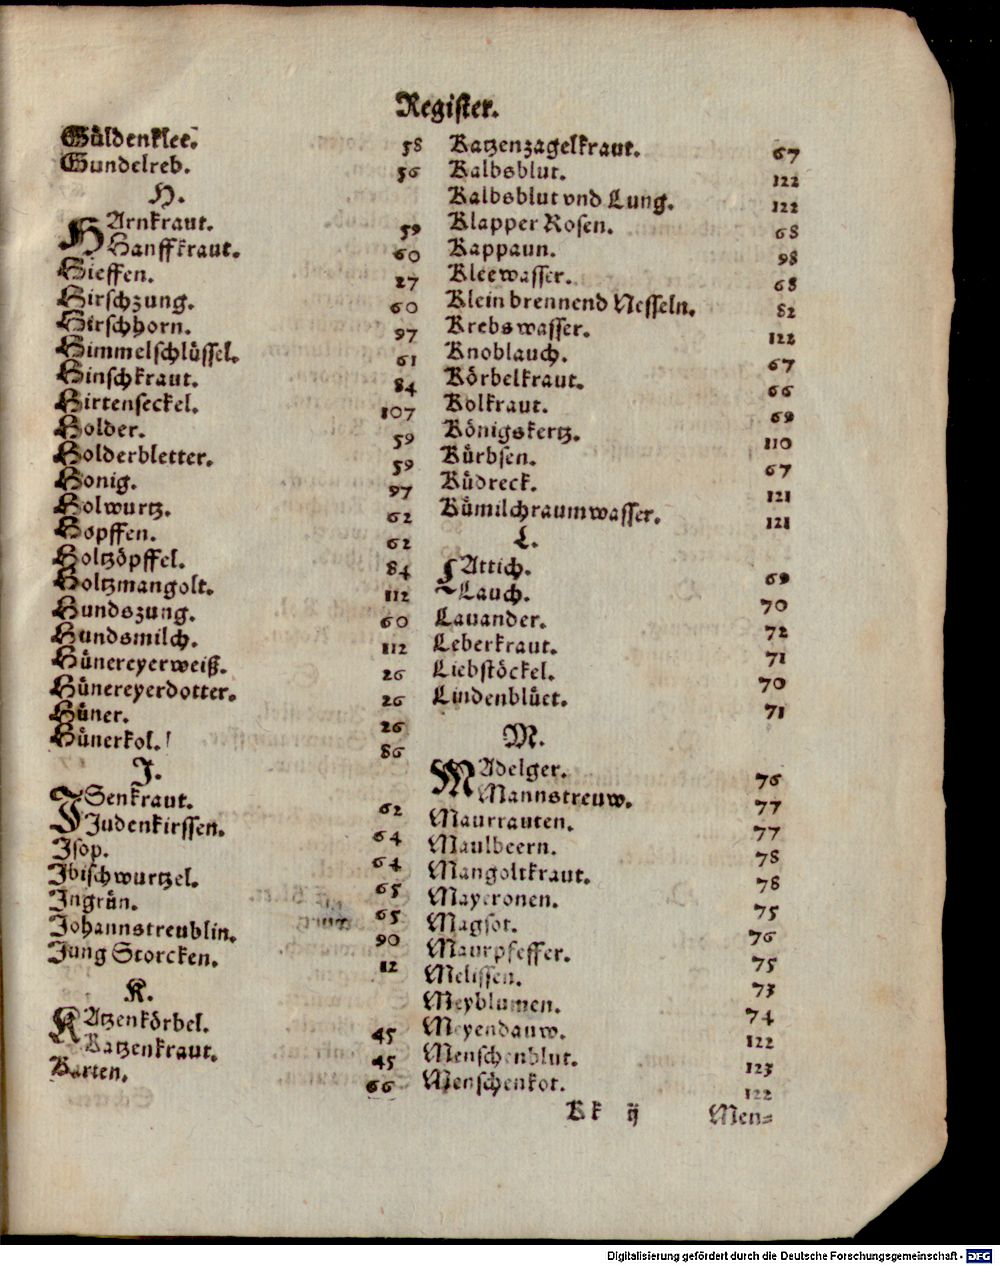 Register.
Güldenklee. 58
Gundelreb. 56
H.
HArnkraut. 59
Hanffkraut. 60
Hieffen. 27
Hirschzung. 60
Hirschhorn. 97
Himmelschlüssel. 61
Hinschkraut. 84
Hirtenseckel. 107
Holder. 59
Holderbletter. 59
Honig. 97
Holwurtz. 62
Hopffen. 62
Holtzöpffel. 84
Holtzmangolt. 112
Hundszung. 60
Hundsmilch. 112
Hünereyerweiß. 26
Hünereyerdotter. 26
Hüner. 26
Hünerkol. 86
J.
JSenkraut. 62
Judenkirssen. 64
Jsop. 64
Jbischwurtzel. 65
Jngrün. 65
Johannstreublin. 90
Jung Storcken. 12
K.
KAtzenkörbel. 45
Katzenkraut. 45
Karten. 66
Katzenzagelkraut. 67
Kalbsblut. 122
Kalbsblut vnd Lung. 122
Klapper Rosen. 68
Kappaun. 98
Kleewasser. 68
Klein brennend Nesseln. 82
Krebswasser. 122
Knoblauch. 67
Körbelkraut. 66
Kolkraut. 69
Königskertz. 110
Kürbsen. 67
Küdreck. 121
Kümilchraumwasser. 121
L.
LAttich. 69
Lauch. 70
Lauander. 72
Leberkraut. 71
Liebstöckel. 70
Lindenblüet. 71
M.
MAdelger. 76
Mannstreuw. 77
Maurrauten. 77
Maulbeern. 78
Mangoltkraut. 78
Mayeronen. 75
Magsot. 76
Maurpfeffer. 75
Melissen. 73
Meyblumen. 74
Meyendauw. 122
Menschenblut. 123
Menschenkot. 122
Kk ij Men=
Digitalisierung gefördert durch die Deutsche Forschungsgemeinschaft - DFG